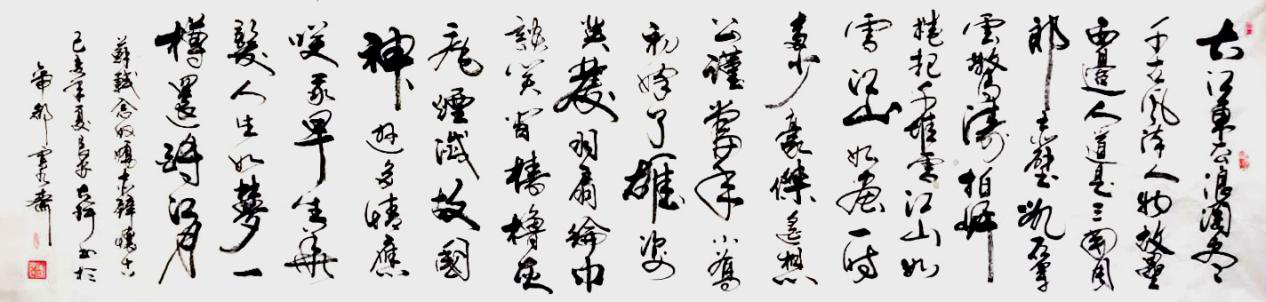 大江東去浪淘盡
千古風流人物故壘
西邊人道是三國周
郎赤壁亂石穿
雲驚濤拍岸
捲起千堆雪江山如
雪江山如畫一時
多少豪傑遙想
公瑾當年小喬
初嫁了雄姿
英發羽扇綸巾
談笑間檣櫓灰
飛煙滅故國
神遊多情應
笑我早生華
髮人生如夢一
樽還酹江月
蘇軾念奴嬌赤壁懷古
己亥年夏月書於
帝都齋